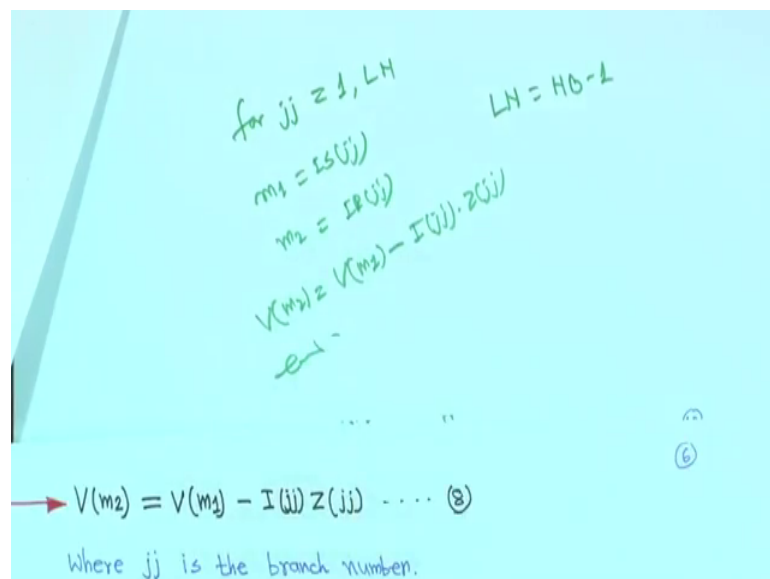 for jj = 1, LN
LN = NB-1
m1 = IS(jj)
m2 = IR(jj)
V(m2) = V(m1) - I(jj). Z(jj)
end
6
V(m2) = V(m1) - I(jj) Z(jj) .... 8
Where jj is the branch number.